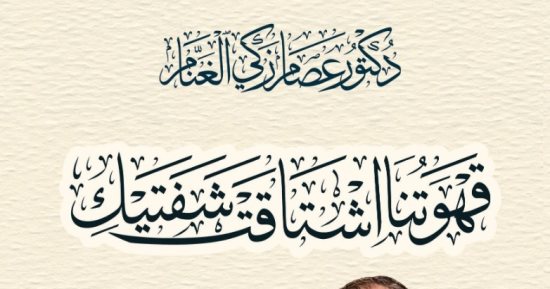 دُكتُور عصَام زكي الغنَّام
قهوَتُنا اشتَاقت شفَتيكِ